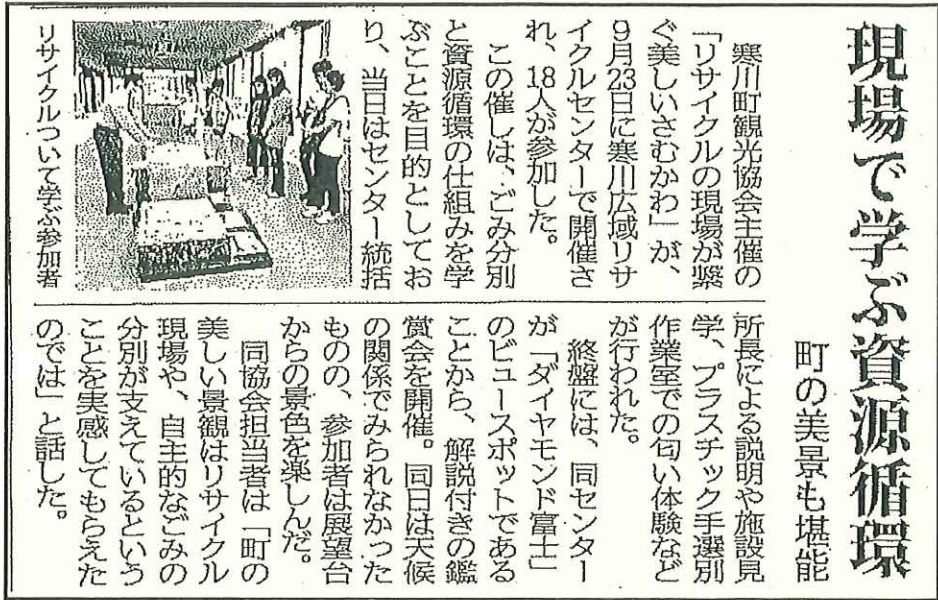 現場で学ぶ資源循環
町の美景も堪能
寒川町観光協会主催の
「リサイクルの現場が繋
ぐ美しいさむかわ」が、
9月23日に寒川広域リサ
イクルセンターで開催さ
れ、18人が参加した。
この催しは、ごみ分別
と資源循環の仕組みを学
ぶことを目的としてお
り、当日はセンター統括
所長による説明や施設見
学、プラスチック手選別
作業室での匂い体験など
が行われた。
終盤には、同センター
が「ダイヤモンド富士」
のビュースポットである
ことから、解説付きの鑑
賞会を開催。同日は天候
の関係でみられなかった
ものの、参加者は展望台
からの景色を楽しんだ。
同協会担当者は「町の
美しい景観はリサイクル
現場や、自主的なごみの
分別が支えているという
ことを実感してもらえた
のでは」と話した。
リサイクルついて学ぶ参加者